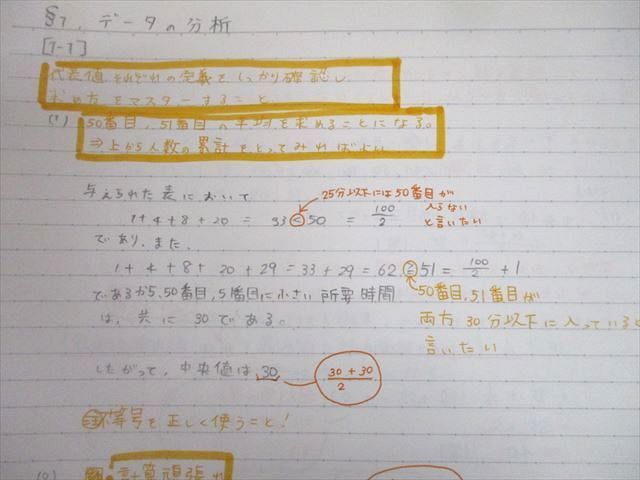 §7. データの分析
[7-1]
代表値それぞれの定義をしっかり確認し
求め方をマスターすること。
(1) 50番目, 51番目の平均を求めることになる。
⇒上から人数の累計をとってみればよい
与えられた表において
25分以下には50番目が
入らない
と言いたい
1+4+8+20 = 33 < 50 = 100/2
であり, また,
1+4+8+20+29=33+29=62 ≧ 51 = 100/2 + 1
であるから, 50番目, 5番目に小さい所要時間
は, 共に30である。
50番目, 51番目が
両方30分以下に入っていると
言いたい
したがって, 中央値は 30
30+30/2
等号を正しく使うこと!
(2)
計算頑張れ